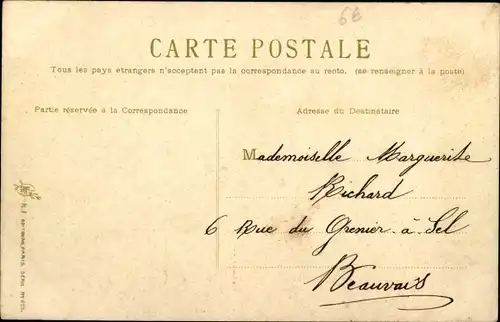 6€
CARTE POSTALE
Tous les pays etrangers n'acceptent pas la correspondance au recto. (se renseigner à la poste)
Partie réservée à la Correspondance
Adresse du Destinataire
Mademoiselle Marguerite
Richard
6 Rue du Grenier-à-Sel
Beauvais
PARIS